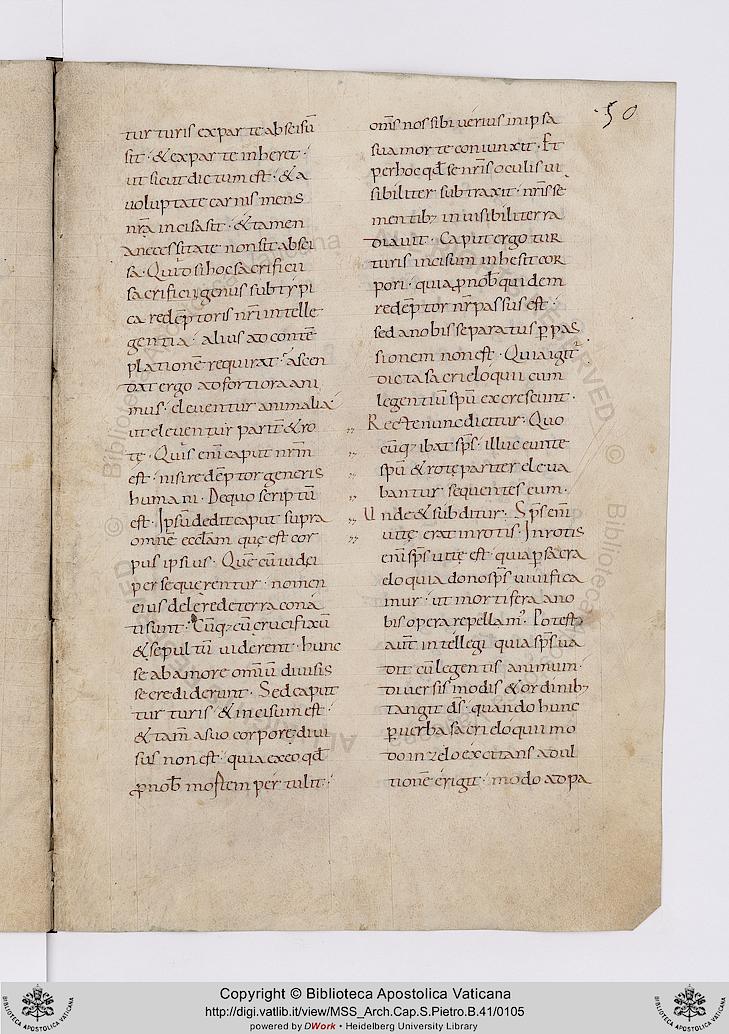 ·50
turturis ex parte abscisū
sit · & ex parte inheret ·
ut sicut dictum est · & a
voluptate carnis mens
nr̄a incisa sit · & tamen
a necessitate non sit absci
sa · Quid si hoc sacrificii
sacrificii genus sub typi
ca redēptoris nr̄i intelle
gentia · alius ad contē
platione requirat · ascen
dat ergo ad fortiora ani
mus · eleuentur animalia
ut eleuentur parit̄ & ro
tę · Quis enī caput nr̄m
est · nisi redēptor generis
humani · De quo scriptū
est · Ipsū dedit caput supra
omnē eccłam quę est cor
pus ipsius · Quē cū iudei
persequerentur · nomen
eius delere de terra conā
ti sunt · Cūq; cū crucifixū
& sepultū uiderent · hunc
se ab amore omiū diuisis
se crediderunt · Sed caput
turturis & incisum est ·
& tam̄ a suo corpore diui
sus non est · quia ex eo qd̄
ꝓ nob̄ mortem pertulit ·
om̄s nos sibi uerius in ipsa
sua morte coniunxit · Et
per hoc qd̄ se nr̄is oculis ui
sibiliter subtraxit · nr̄is se
mentib; inuisibiliter ra
diauit · Caput ergo tur
turis incisum inhesit cor
pori · quia ꝓ nob̄ quidem
redēptor nr̄ passus est ·
sed a nobis separatus ꝑ pas
sionem non est · Quia igit̄
dicta sacri eloquii cum
legentiū spū excrescunt ·
Recte nunc dicitur · Quo
cūq; ibat sps̄ · illuc eunte
spū & rotę pariter eleua
bantur sequentes eum ·
Unde & subditur · Sps̄ enī
uitę erat in rotis · In rotis
enī sps̄ uitę est · quia ꝑ sacra
eloquia dono sps̄ uiuifica
mur · ut mortifera a no
bis opera repellam' · Potest
aut̄ intellegi quia sps̄ ua
dit cū legentis animum
diuersis modis & ordinib;
tangit dš · quando hunc
ꝑ uerba sacri eloquii mo
do in zelo excitans ad ul
tionē erigit · modo ad pa
Copyright © Biblioteca Apostolica Vaticana
http://digi.vatlib.it/view/MSS_Arch.Cap.S.Pietro.B.41/0105
powered by DWork • Heidelberg University Library
BIBLIOTECA APOSTOLICA VATICANA
BIBLIOTECA APOSTOLICA VATICANA